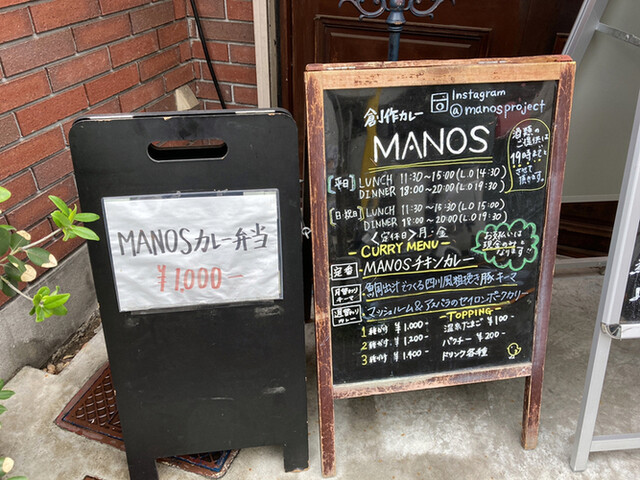 MANOSカレー弁当
¥1,000-
Instagram
@manosproject
創作カレー
MANOS
酒類の
ご提供は
19時まで
[平日] LUNCH 11:30~15:00 (L.O 14:30)
DINNER 18:00~20:00 (L.O 19:30)
[日・祝] LUNCH 11:30~15:30 (L.O 15:00)
DINNER 18:00~20:00 (L.O 19:30)
<定休日> 月・金
お支払いは
現金のみと
なります!!
-CURRY MENU-
定番 MANOSチキンカレー
月替わりキーマ 鯛出汁でつくる四川風粗挽き豚キーマ
週替わりカレー マッシュルーム&アスパラのセイロンポークカリー
-TOPPING-
1種がけ ¥1,000
2種がけ ¥1,200
3種がけ ¥1,400
温泉たまご ¥100
パクチー ¥200
ドリンク各種